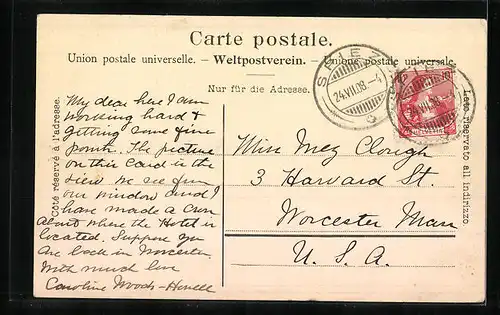 Carte postale.
Union postale universelle. – Weltpostverein. – Unione postale universale.
Nur für die Adresse.
Côté réservé à l'adresse.
My dear here I am
working hard &
getting some fine
points. The picture
on this card is the
view we see from
our window and I
have made a cross
about where the Hotel is
located. Suppose you
are back in Worcester.
With much love
Caroline Woods-
Miss Meg Clough
3 Harvard St.
Worcester Mass
U. S. A.
24.VII.08.–4
24.VII.08.
Lato riservato all indirizzo.